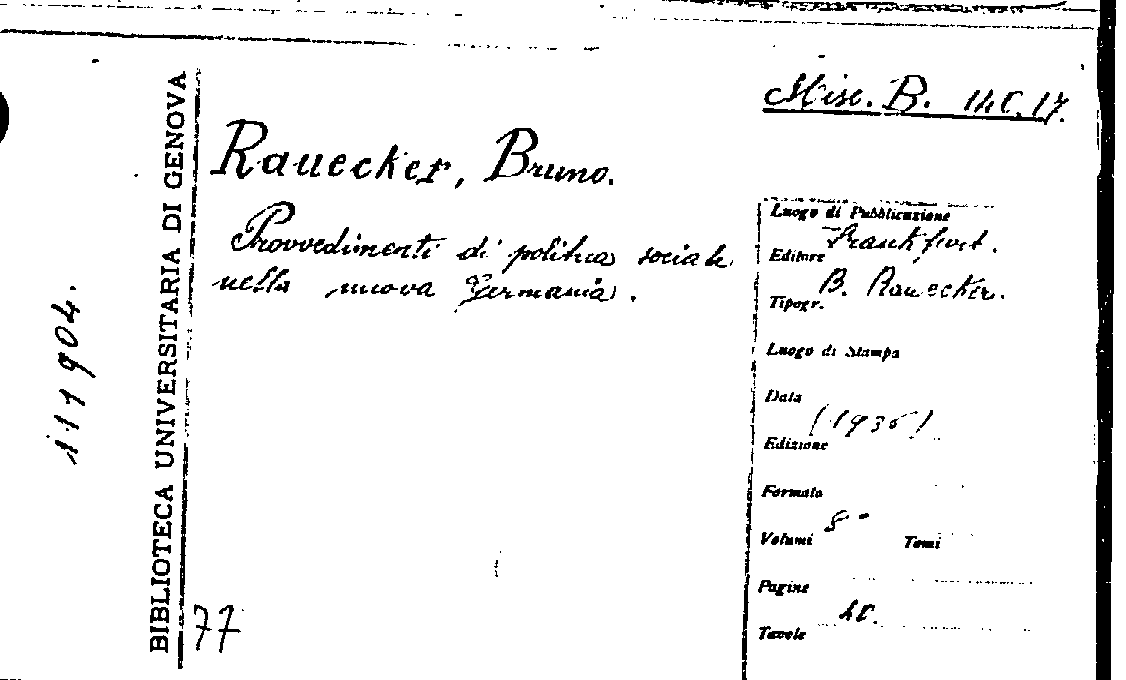 Misc. B. 14C.17.
Rauecker, Bruno.
Provvedimenti di politica sociale
nella nuova Germania.
Luogo di Pubblicazione
Frankfurt.
Editore
B. Rauecker.
Tipogr.
Luogo di Stampa
Data
Edizione
Formato
8°
Volumi Tomi
Pagine
Tavole
BIBLIOTECA UNIVERSITARIA DI GENOVA
111904.
77